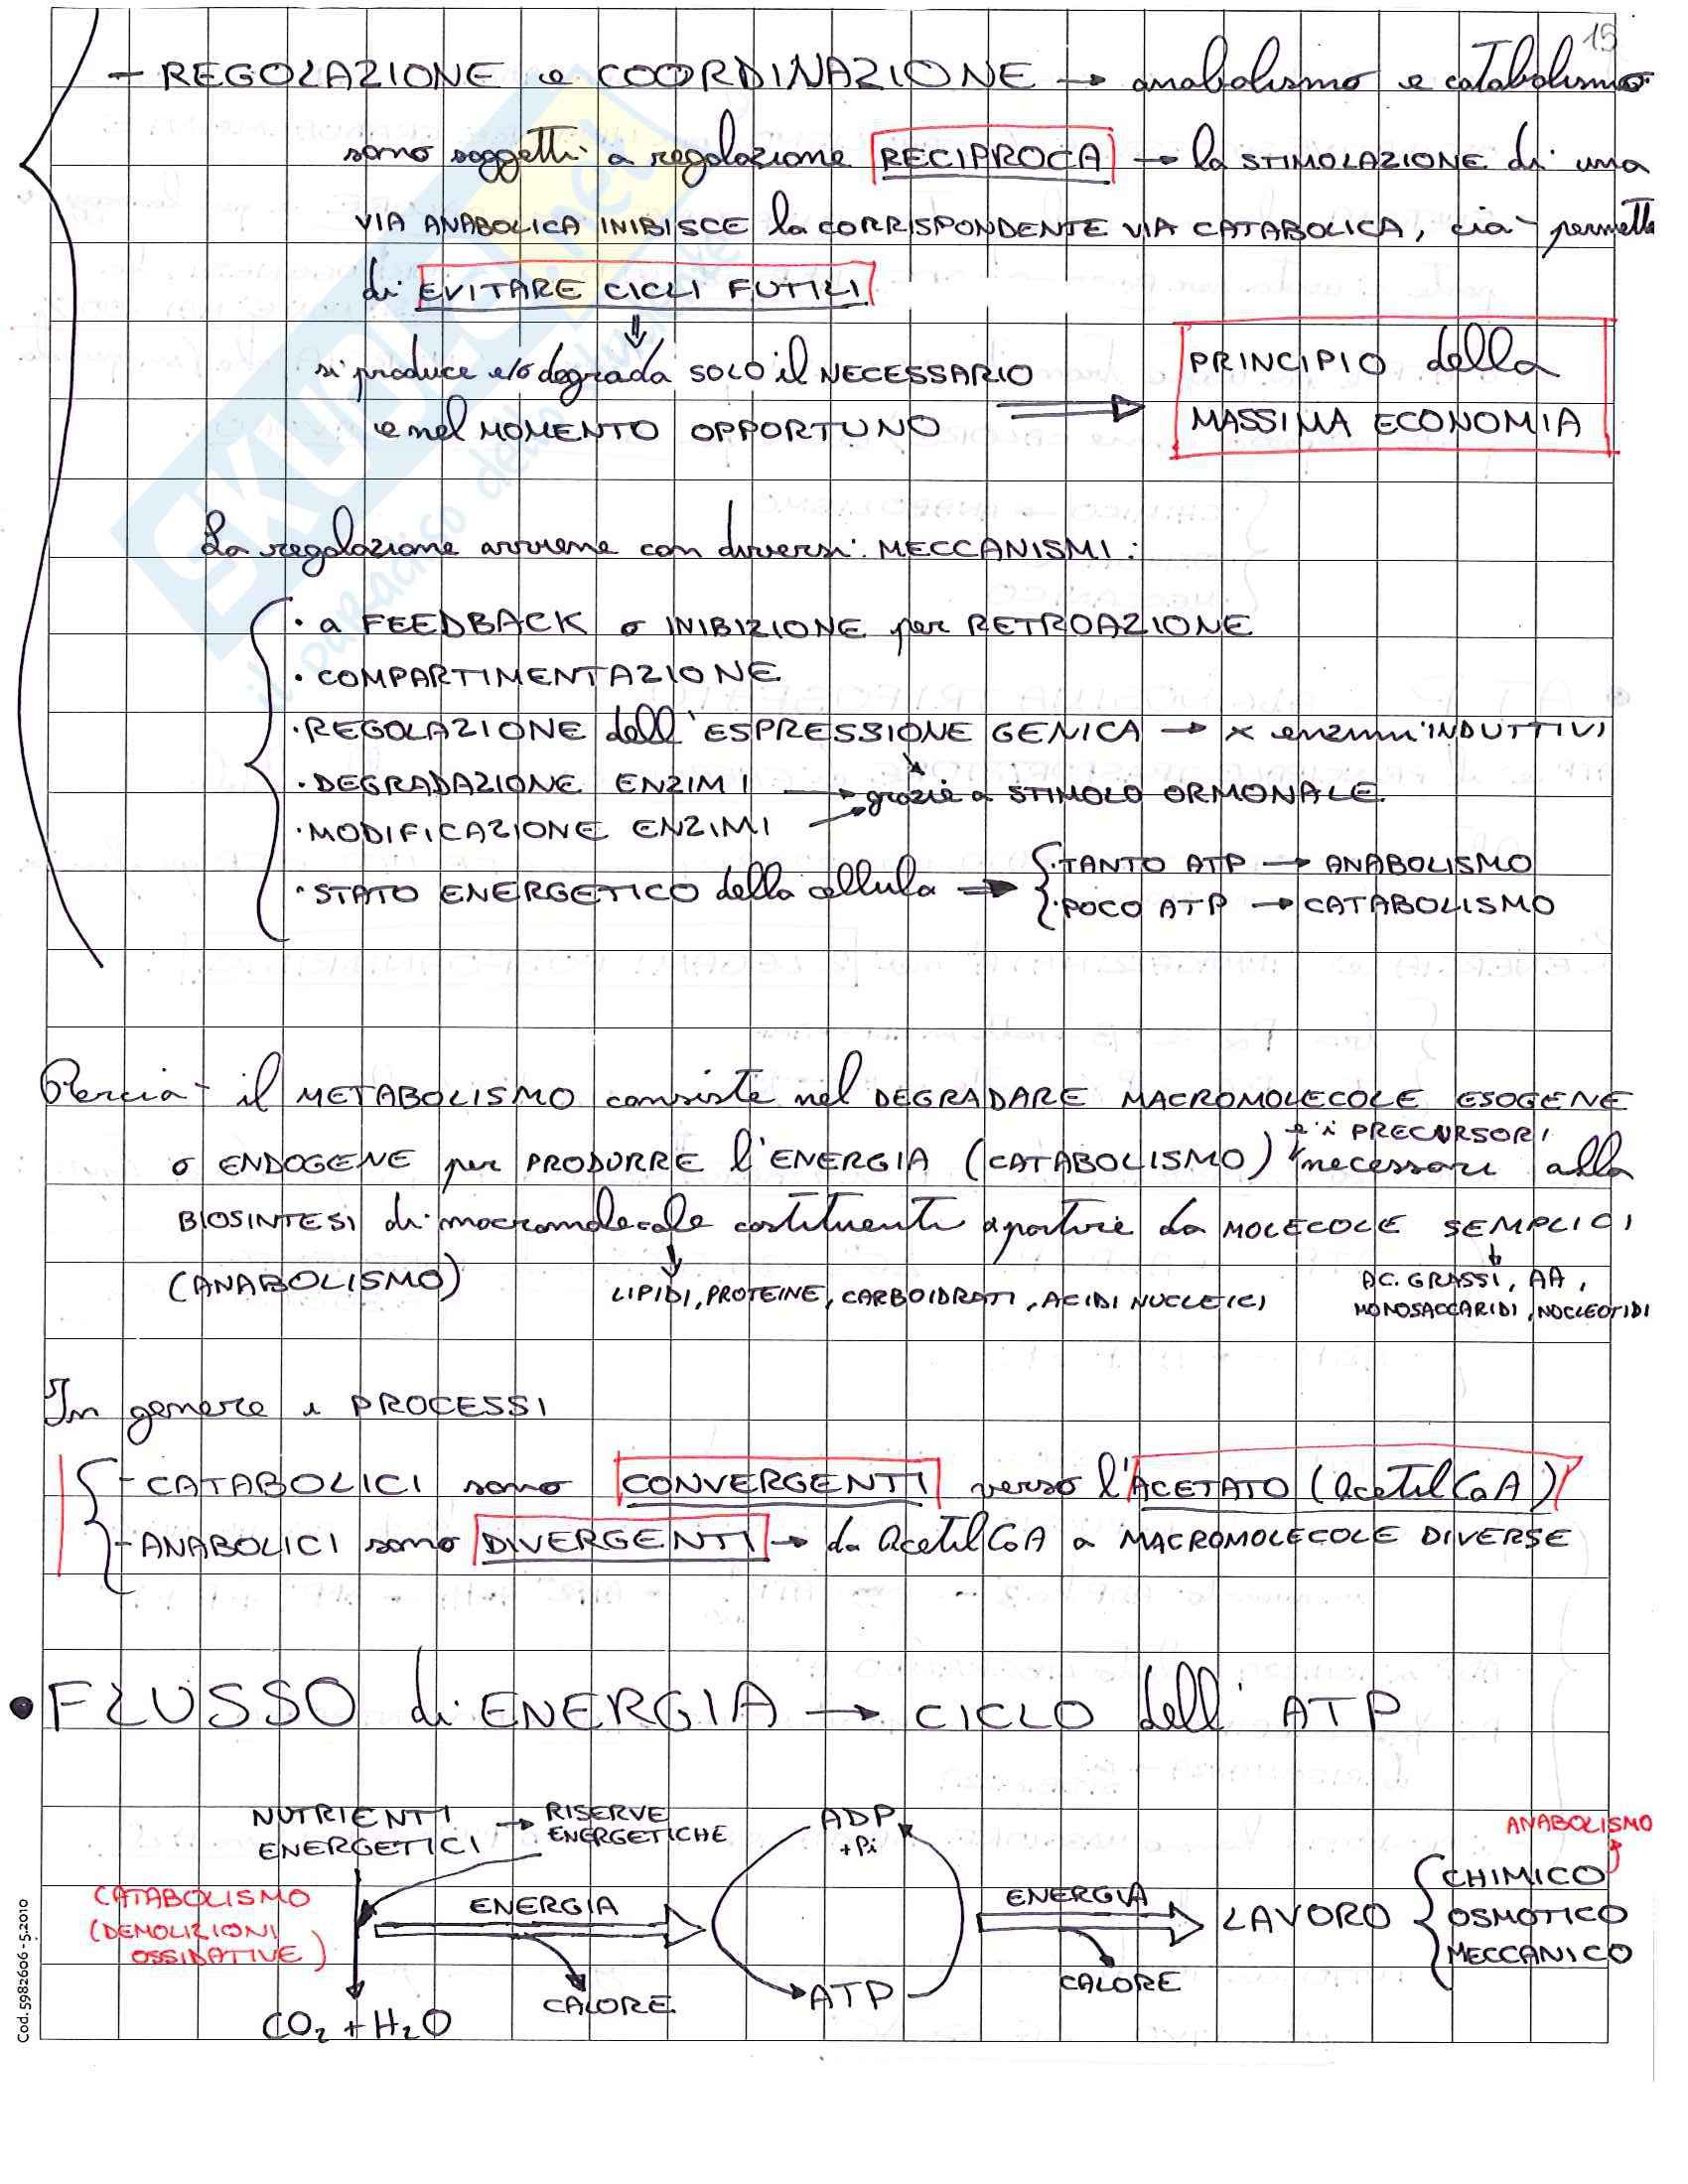 15
- REGOLAZIONE e COORDINAZIONE → anabolismo e catabolismo
sono soggetti a regolazione RECIPROCA → la STIMOLAZIONE di una
VIA ANABOLICA INIBISCE la CORRISPONDENTE VIA CATABOLICA, ciò permette
di EVITARE CICLI FUTILI
si produce e/o degrada SOLO il NECESSARIO
e nel MOMENTO OPPORTUNO
PRINCIPIO della
MASSIMA ECONOMIA
La regolazione avviene con diversi MECCANISMI:
· a FEEDBACK o INIBIZIONE per RETROAZIONE
· COMPARTIMENTAZIONE
· REGOLAZIONE dell'ESPRESSIONE GENICA → x enzimi INDUTTIVI
· DEGRADAZIONE ENZIMI → grazie a STIMOLO ORMONALE
· MODIFICAZIONE ENZIMI
· STATO ENERGETICO della cellula ⇒
· TANTO ATP → ANABOLISMO
· POCO ATP → CATABOLISMO
Perciò il METABOLISMO consiste nel DEGRADARE MACROMOLECOLE ESOGENE
e i PRECURSORI
o ENDOGENE per PRODURRE l'ENERGIA (CATABOLISMO) necessari alla
BIOSINTESI di macromolecole costituenti a partire da MOLECOLE SEMPLICI
(ANABOLISMO)
LIPIDI, PROTEINE, CARBOIDRATI, ACIDI NUCLEICI
AC. GRASSI, AA,
MONOSACCARIDI, NUCLEOTIDI
In genere i PROCESSI
- CATABOLICI sono CONVERGENTI verso l'ACETATO (AcetilCoA)
- ANABOLICI sono DIVERGENTI → da AcetilCoA a MACROMOLECOLE DIVERSE
• FLUSSO di ENERGIA → CICLO dell'ATP
NUTRIENTI
ENERGETICI
→ RISERVE
ENERGETICHE
CATABOLISMO
(DEMOLIZIONI
OSSIDATIVE)
CO₂ + H₂O
ENERGIA
CALORE
ADP
+ Pi
ATP
ENERGIA
CALORE
LAVORO
ANABOLISMO
CHIMICO
OSMOTICO
MECCANICO
Cod. 5982606 - 5.2010
SKUOLA.net
il paradiso dello studente